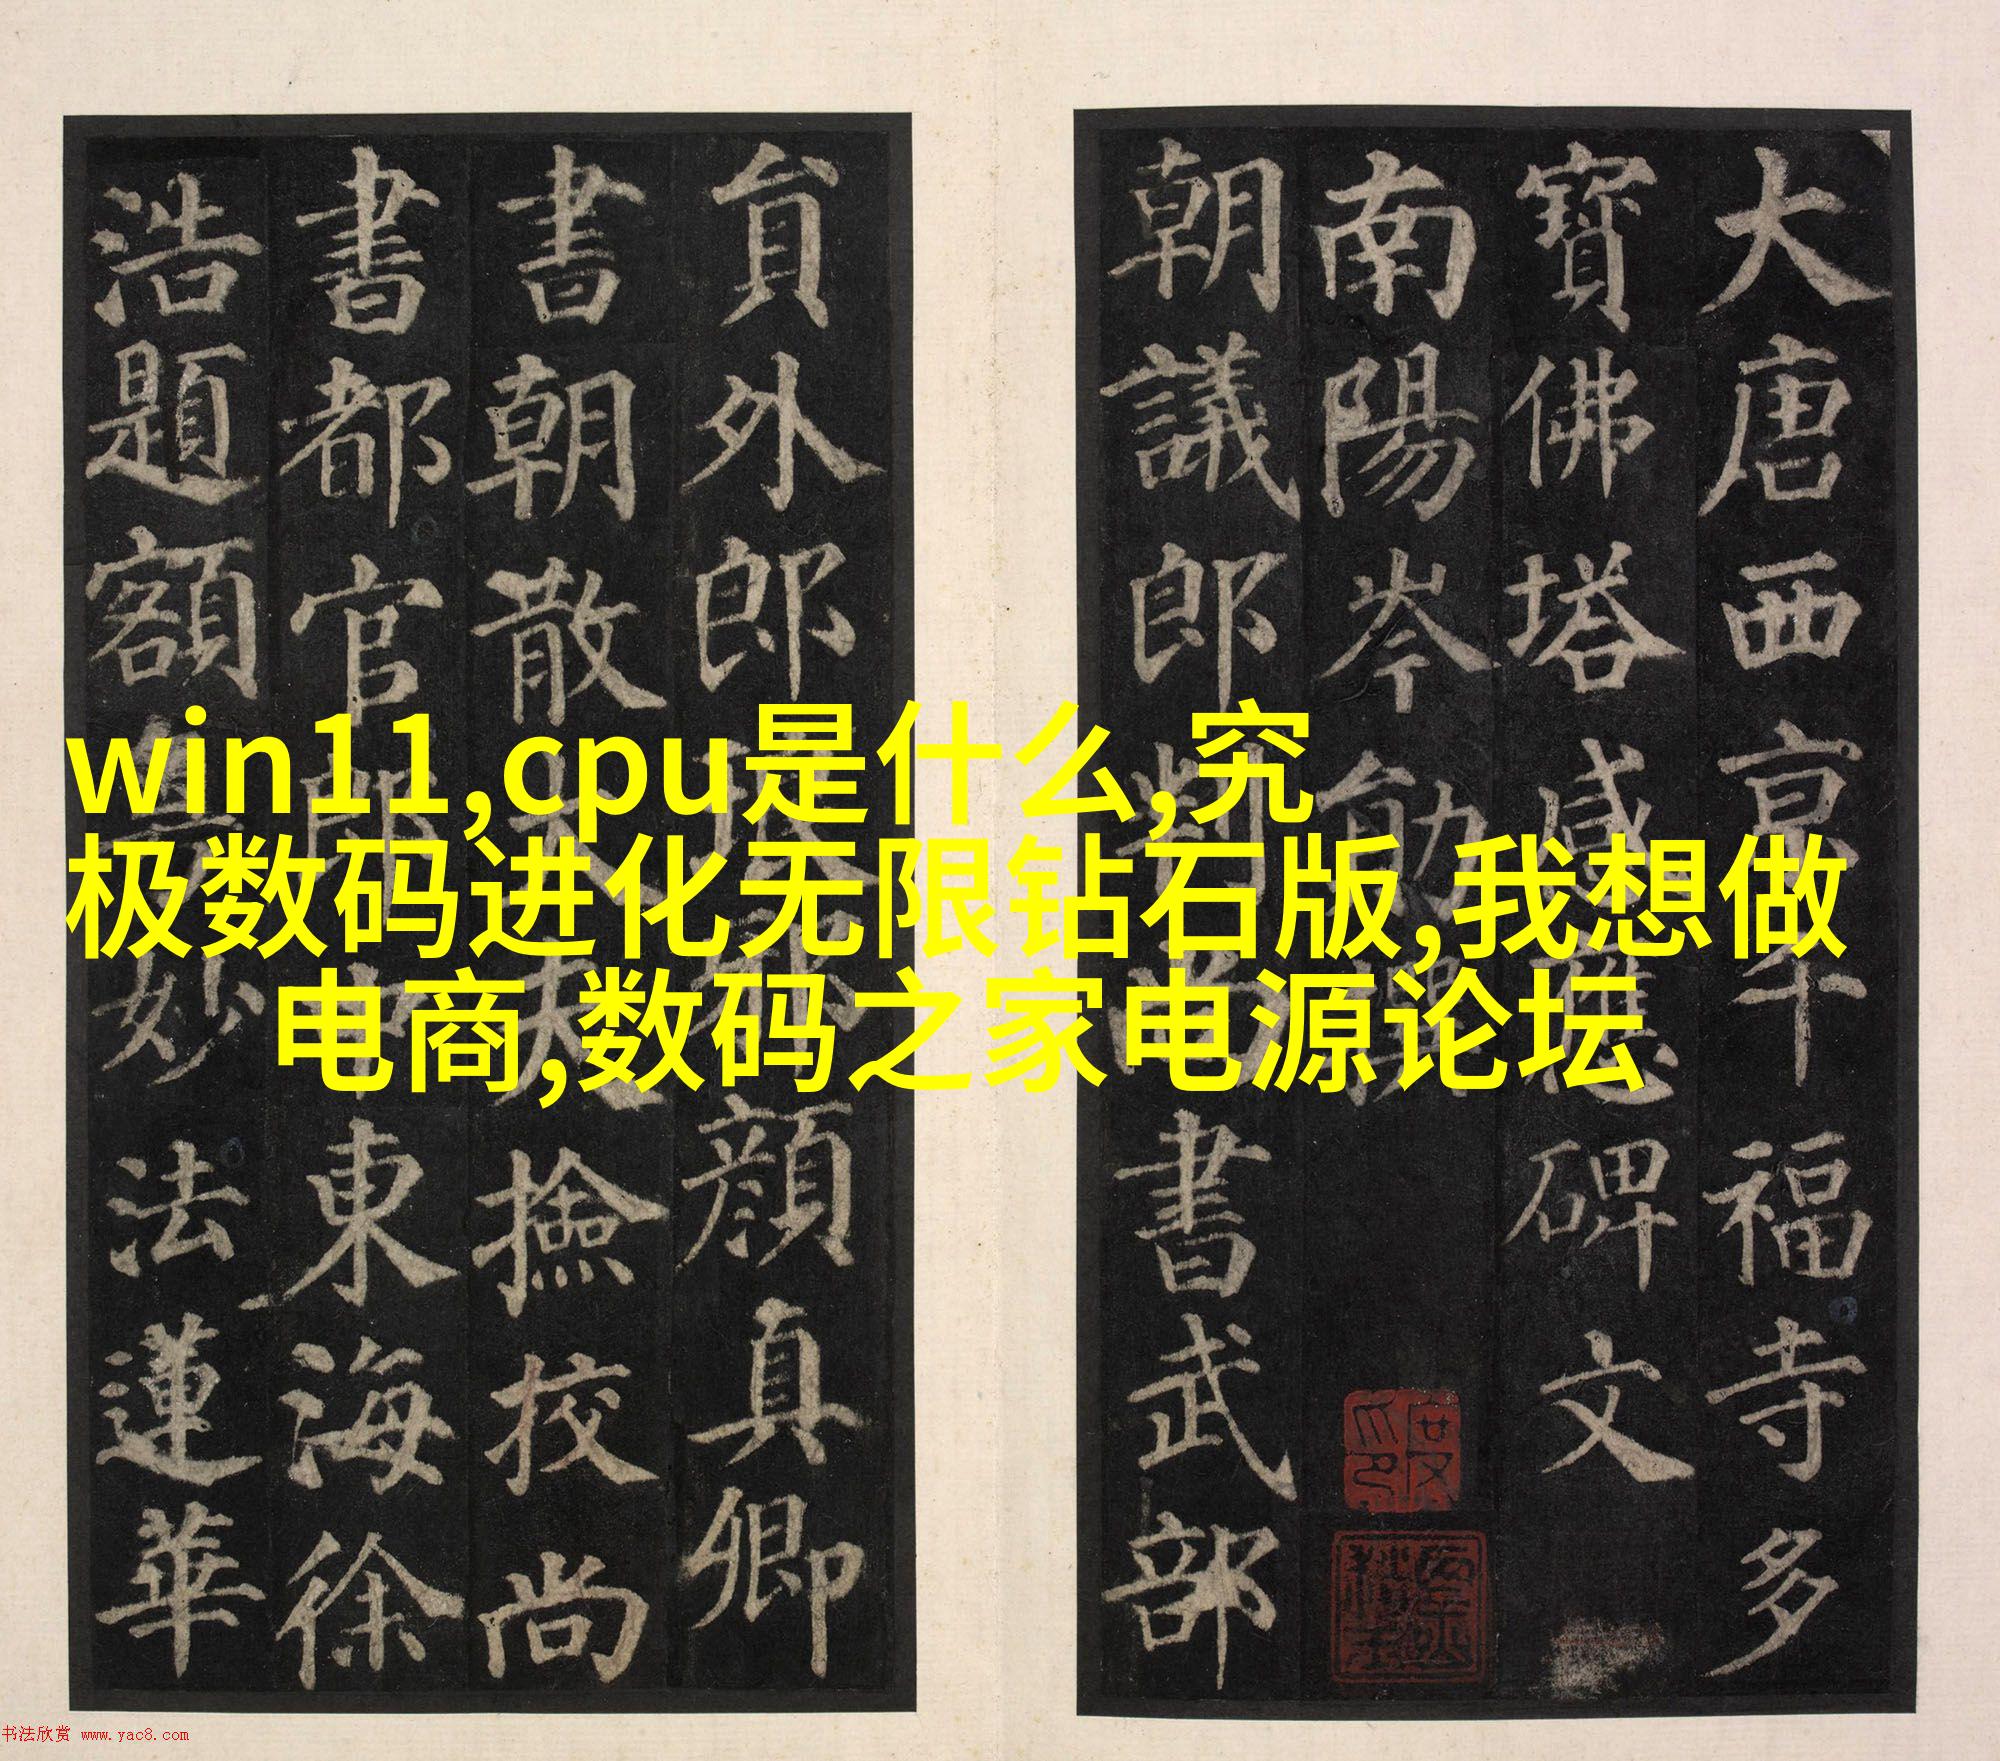 大唐西亰千福寺多
寶佛塔感應碑文
南陽岑勛撰
朝議郎判尚書武部
貟外郎琅邪顏真卿
書朝散大夫撿挍尚
書都官郎中東海徐
浩題額粤妙法蓮華
win11,cpu是什么,究
极数码进化无限钻石版,我想做
电商,数码之家电源论坛
书法欣赏 www.yac8.com